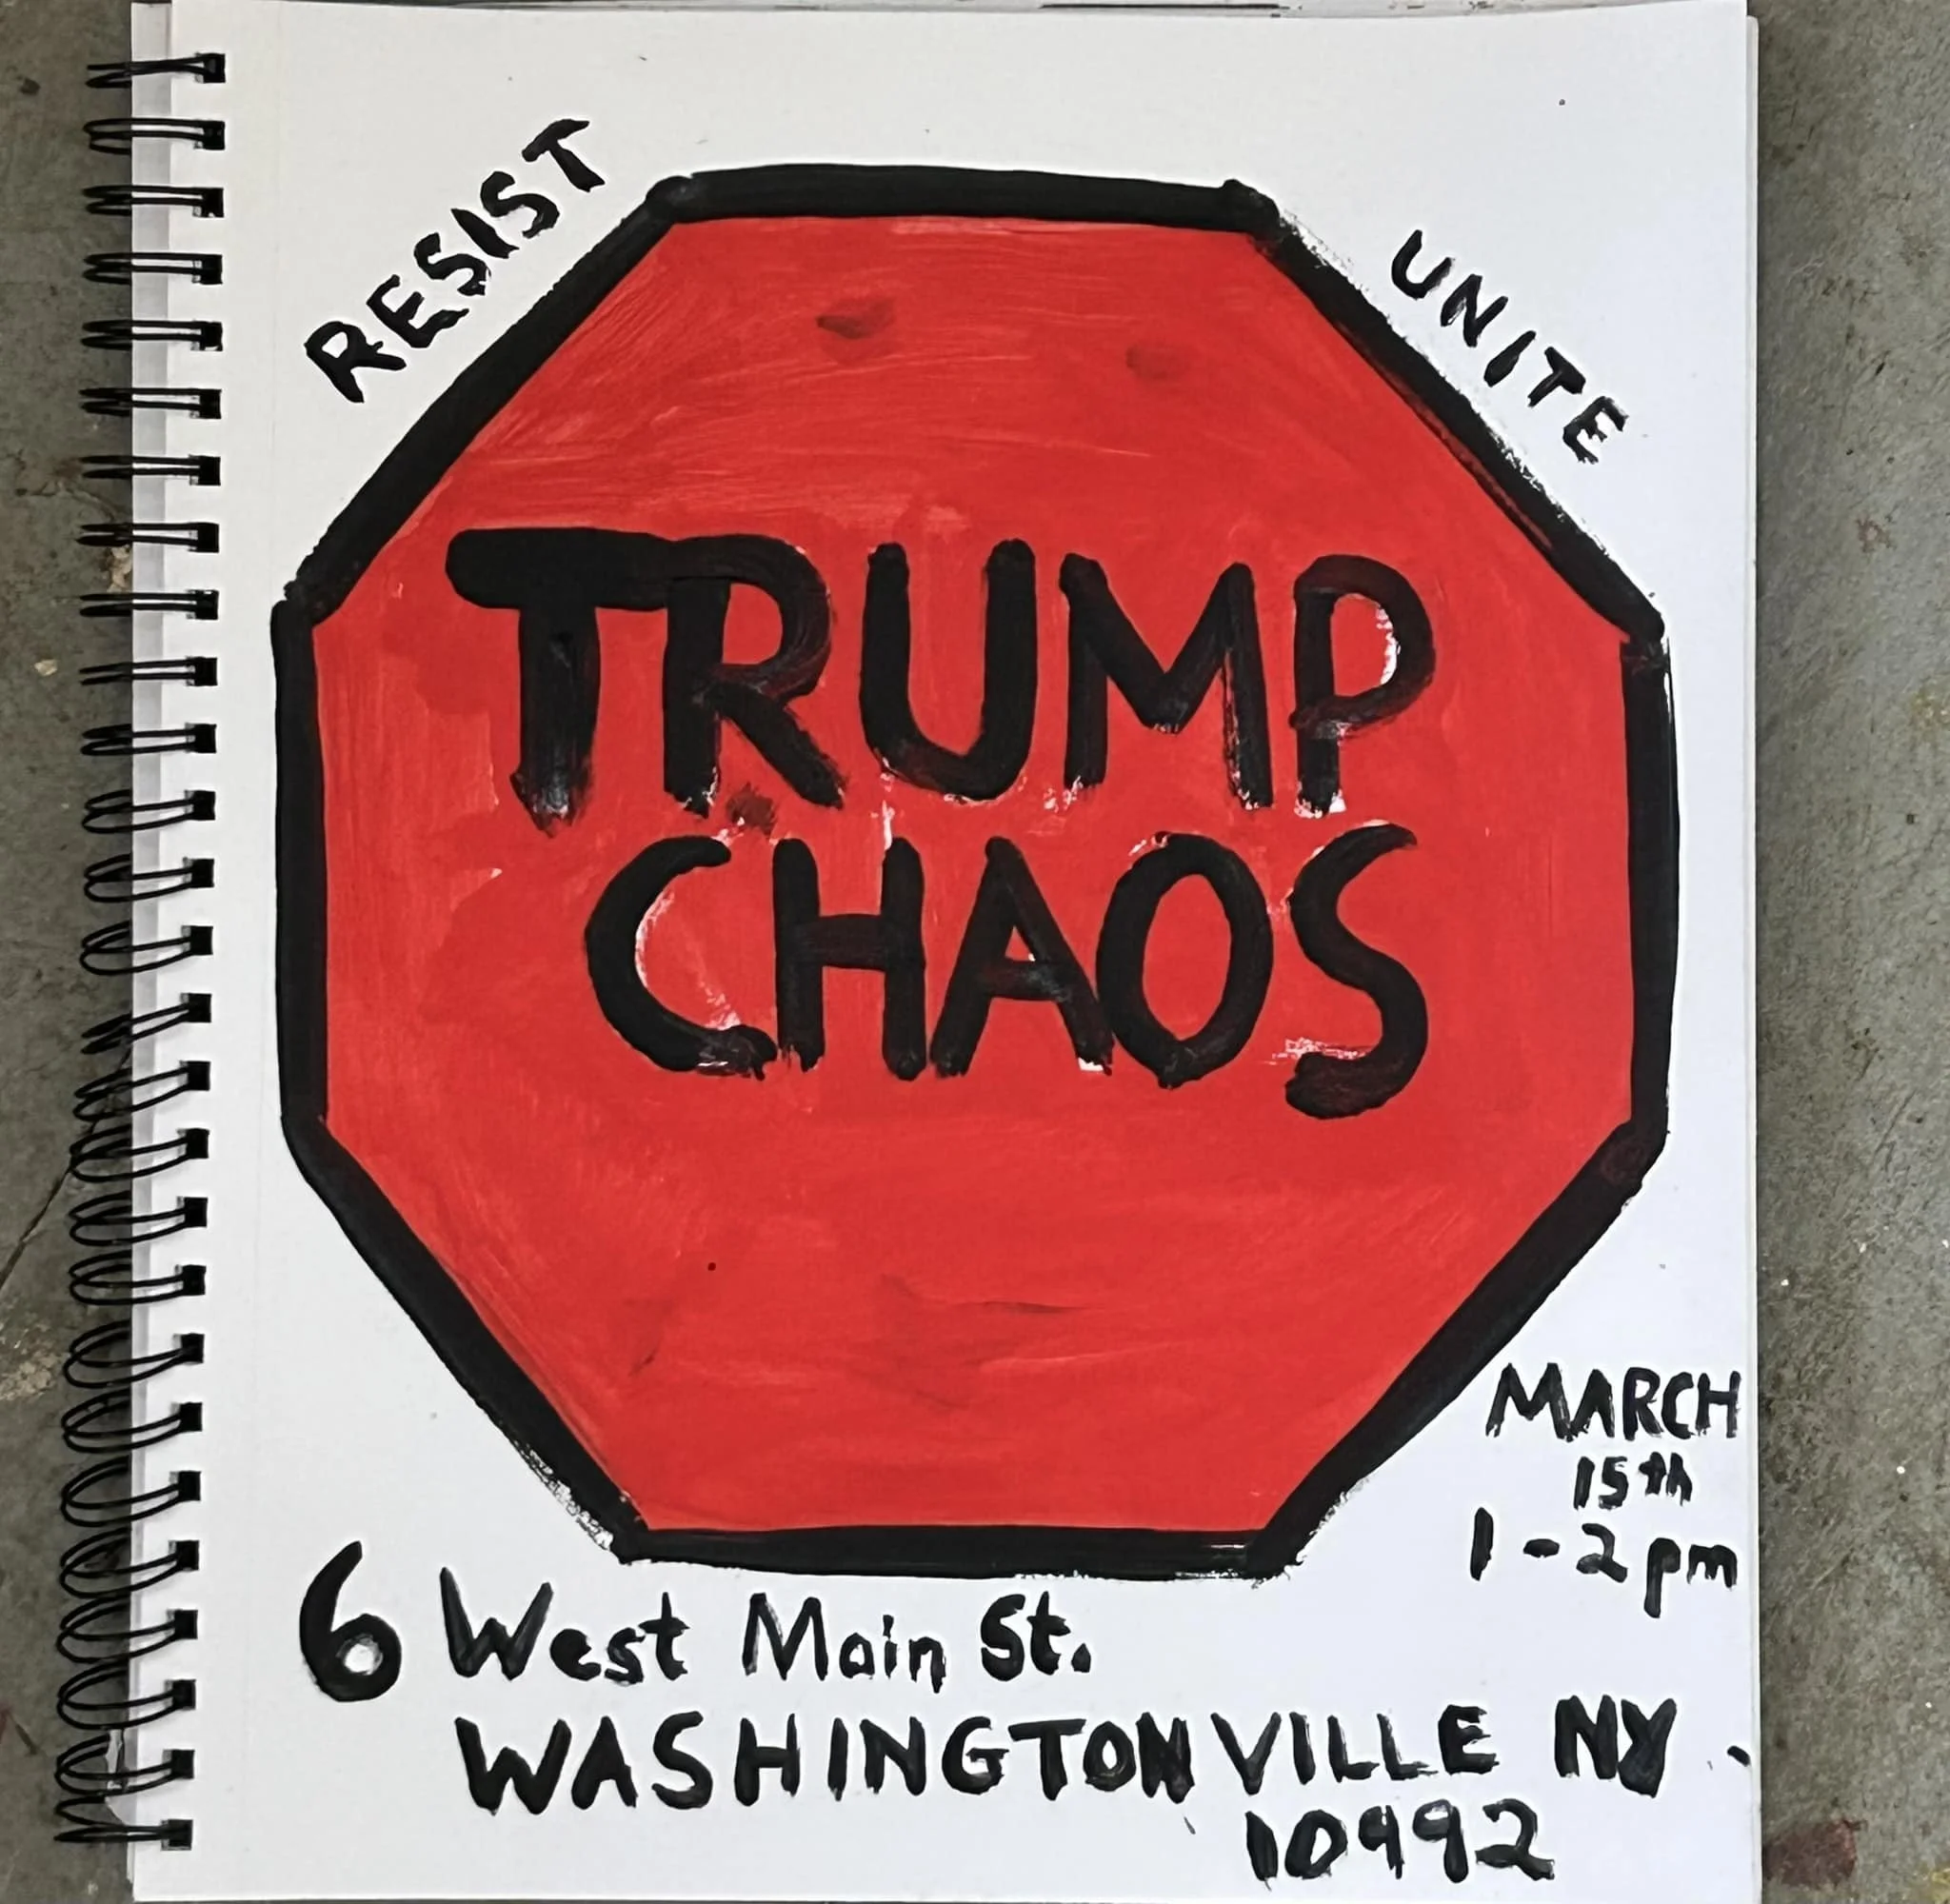 RESIST
UNITE
TRUMP
CHAOS
MARCH
15th
1-2pm
6 West Main St.
WASHINGTONVILLE NY.
10992